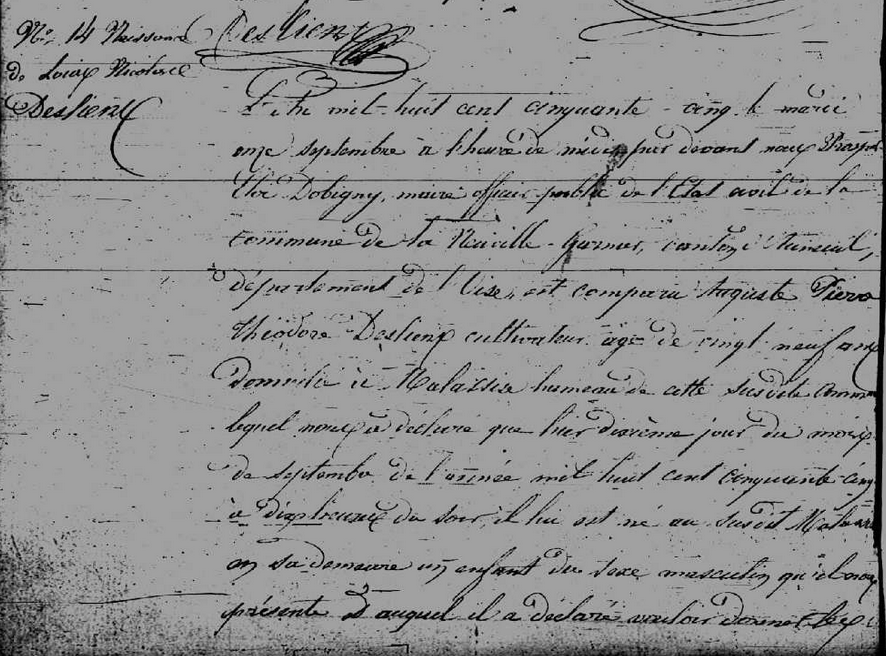 Desliens
N° 14 Naissance
de Louis Nicolas
Desliens
L'An mil huit cent cinquante-cinq le mardi
onze septembre à l'heure de midi par devant nous
Dobigny, maire officier public de l'Etat civil de la
commune de la Neuville-Garnier, canton d'Auneuil,
département de l'Oise, est comparu Auguste Pierre
Théodore Desliens cultivateur agé de vingt neuf ans
Domicilié à Malassise hameau de cette susdite Commune
lequel nous a déclaré que hier dixième jour du mois
de septembre de l'année mil huit cent cinquante-cinq
à dix heures du soir, il lui est né au susdit Malassise
en sa demeure un enfant du sexe masculin qu'il nous
présente & auquel il a déclaré vouloir donner les